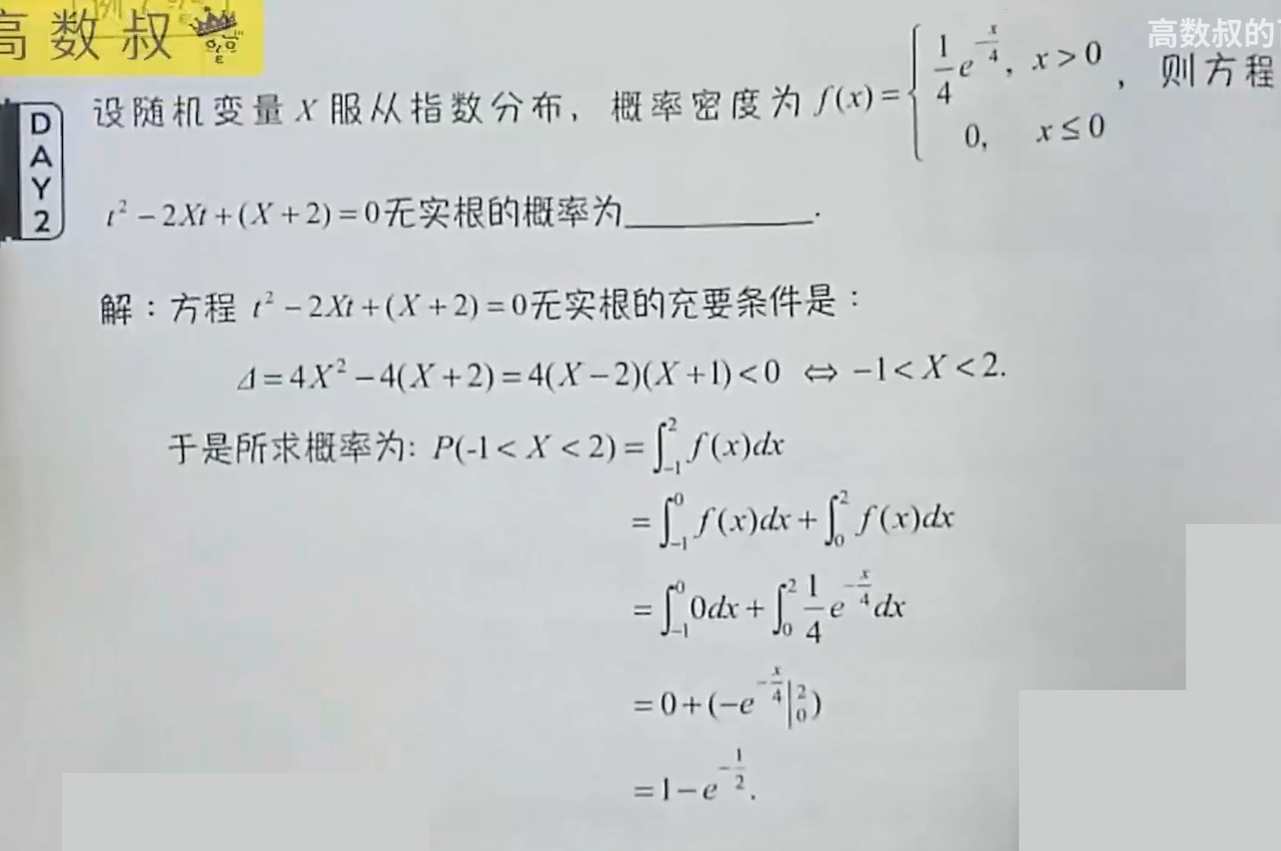 高数叔
高数叔的
DAY2
设随机变量 X 服从指数分布，概率密度为 f(x) = { 1/4 e^{-x/4}, x > 0 ，则方程
0, x ≤ 0
t² − 2Xt + (X + 2) = 0无实根的概率为__________.
解：方程 t² − 2Xt + (X + 2) = 0无实根的充要条件是：
Δ = 4X² − 4(X + 2) = 4(X − 2)(X + 1) < 0 ⇔ −1 < X < 2.
于是所求概率为: P(-1 < X < 2) = ∫_{-1}^{2} f(x)dx
= ∫_{-1}^{0} f(x)dx + ∫_{0}^{2} f(x)dx
= ∫_{-1}^{0} 0dx + ∫_{0}^{2} 1/4 e^{-x/4} dx
= 0 + (−e^{-x/4}|_{0}^{2})
= 1 − e^{-1/2}.